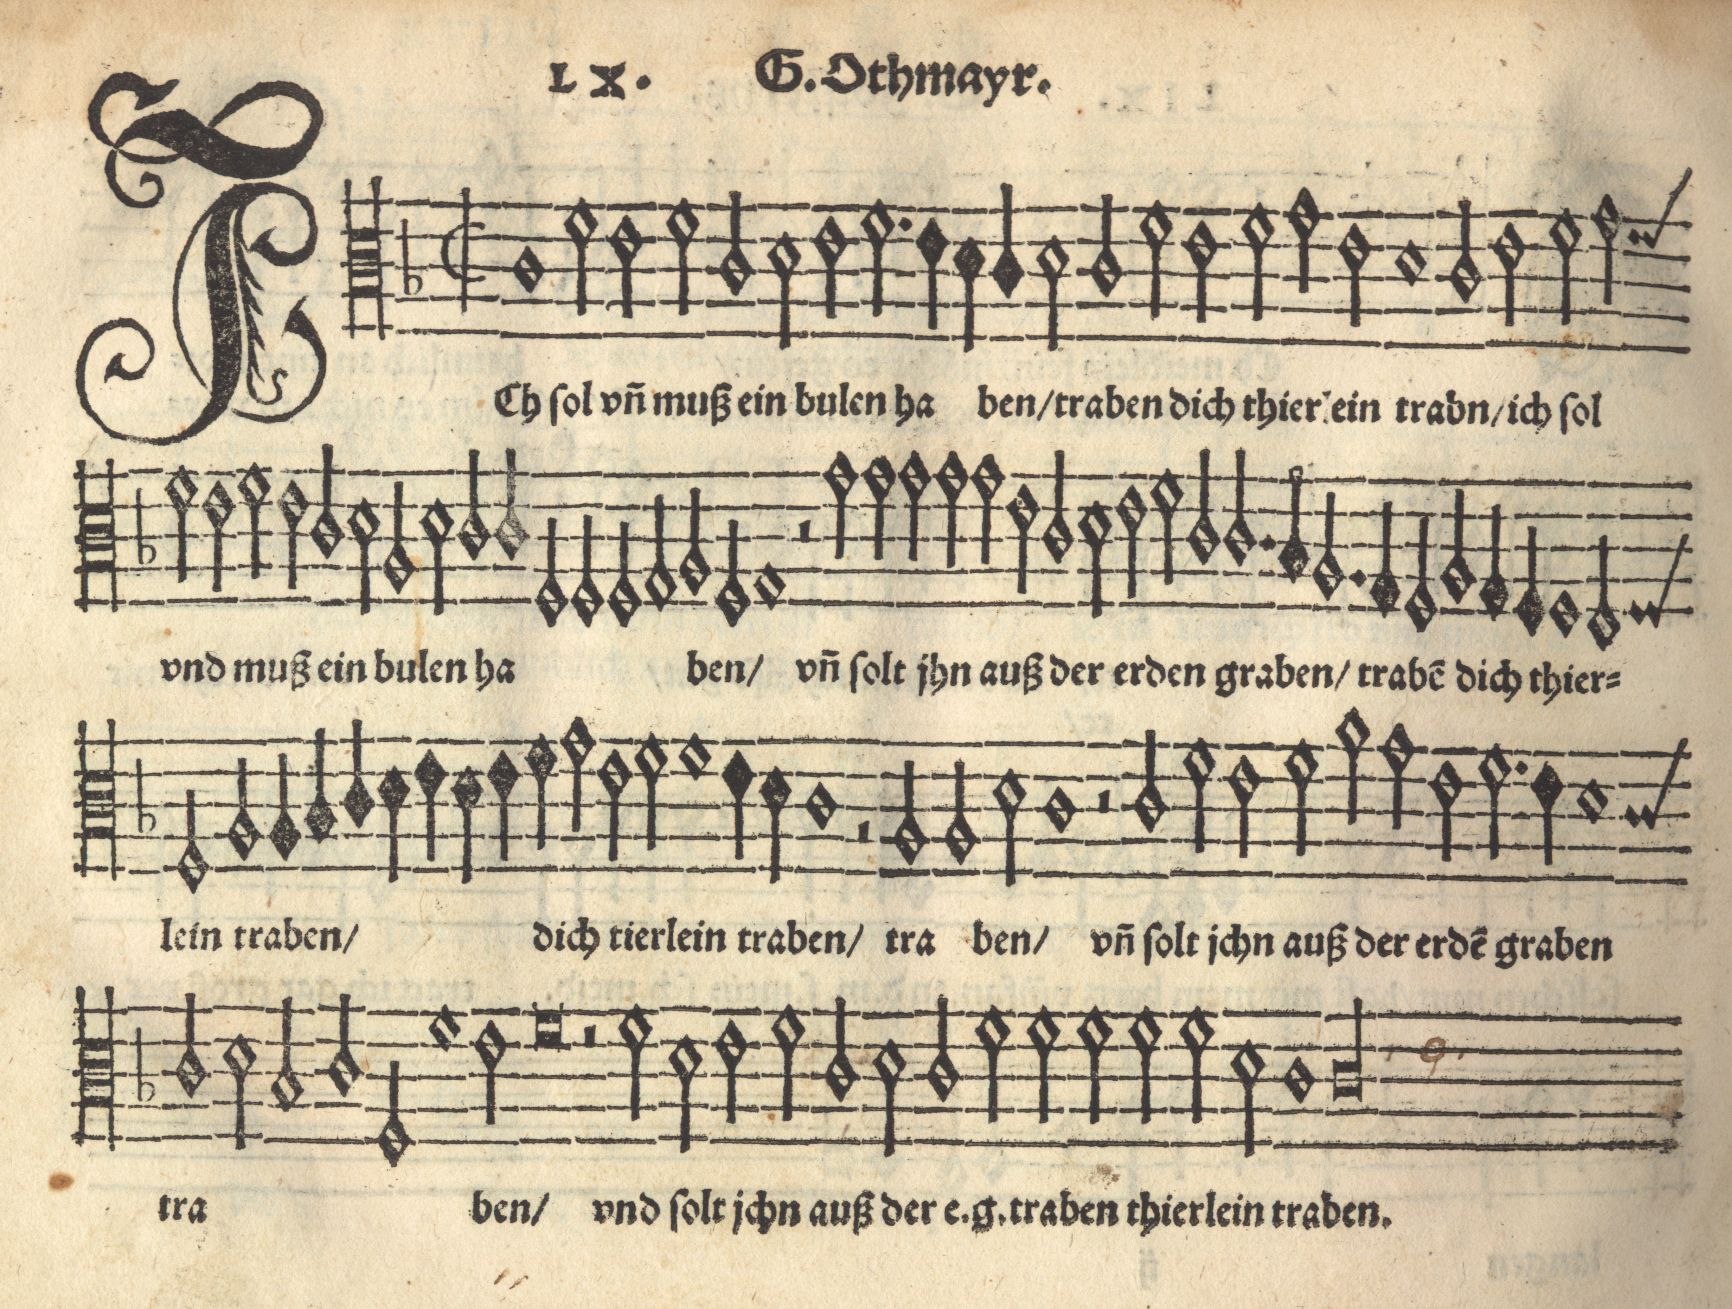 LX. G. Othmayr.
ICh sol vñ muß ein bulen ha ben/traben dich thierlein trabn/ich sol
vnd muß ein bulen ha ben/ vñ solt jhn auß der erden graben/ trabē dich thier=
lein traben/ dich tierlein traben/ tra ben/ vñ solt jchn auß der erdē graben
tra ben/ vnd solt jchn auß der e.g.traben thierlein traben.